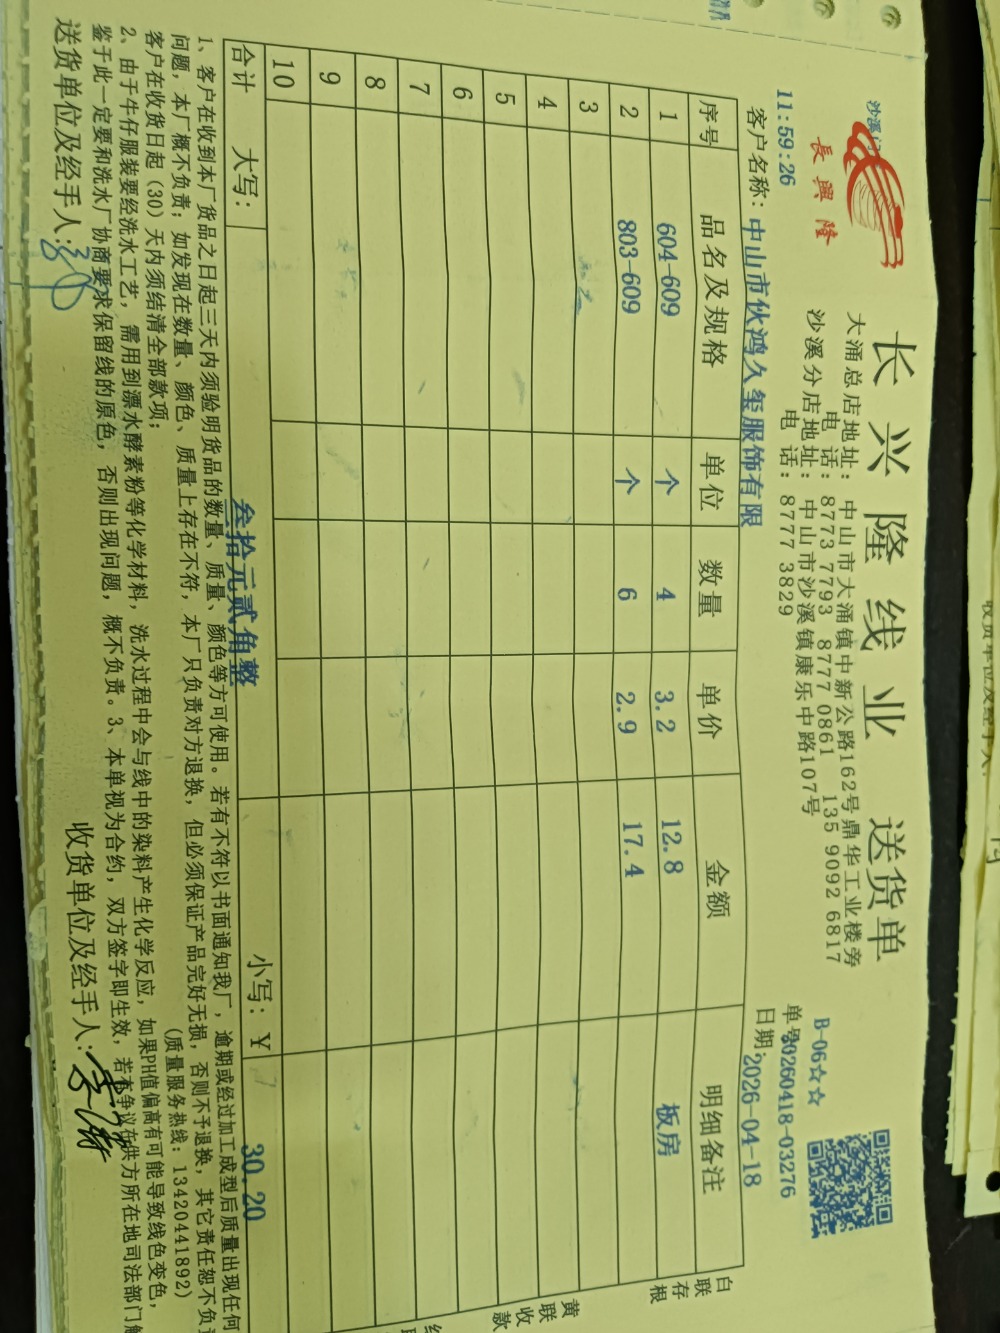 長興隆
长兴隆线业 送货单
大涌总店地址：中山市大涌镇中新公路162号鼎华工业楼旁
电 话：8773 7793 8777 0861 135 9092 6817
沙溪分店地址：中山市沙溪镇康乐中路107号
电 话：8777 3829
B-06☆☆
单号20260418-03276
11:59:26
客户名称：中山市伙鸿久玺服饰有限
日期：2026-04-18
序号 品名及规格 单位 数量 单价 金额 明细备注
1 604-609 个 4 3.2 12.8 板房
2 803-609 个 6 2.9 17.4
3
4
5
6
7
8
9
10
合计 大写：叁拾元贰角整 小写：￥ 30.20
白联存根
黄联收款
1、客户在收到本厂货品之日起三天内须验明货品的数量、质量、颜色等方可使用。若有不符以书面通知我厂，逾期或经过加工成型后质量出现任何
问题，本厂概不负责；如发现在数量、颜色、质量上存在不符，本厂只负责对方退换，但必须保证产品完好无损，否则不予退换，其它责任恕不负
客户在收货日起（30）天内须结清全部款项； （质量服务热线：13420441892）
2、由于牛仔服装要经洗水工艺，需用到漂水酵素粉等化学材料，洗水过程中会与线中的染料产生化学反应，如果PH值偏高有可能导致线色变色，
鉴于此一定要和洗水厂协商要求保留线的原色，否则出现问题，概不负责。3、本单视为合约，双方签字即生效，若有争议在供方所在地司法部门
送货单位及经手人： 收货单位及经手人：